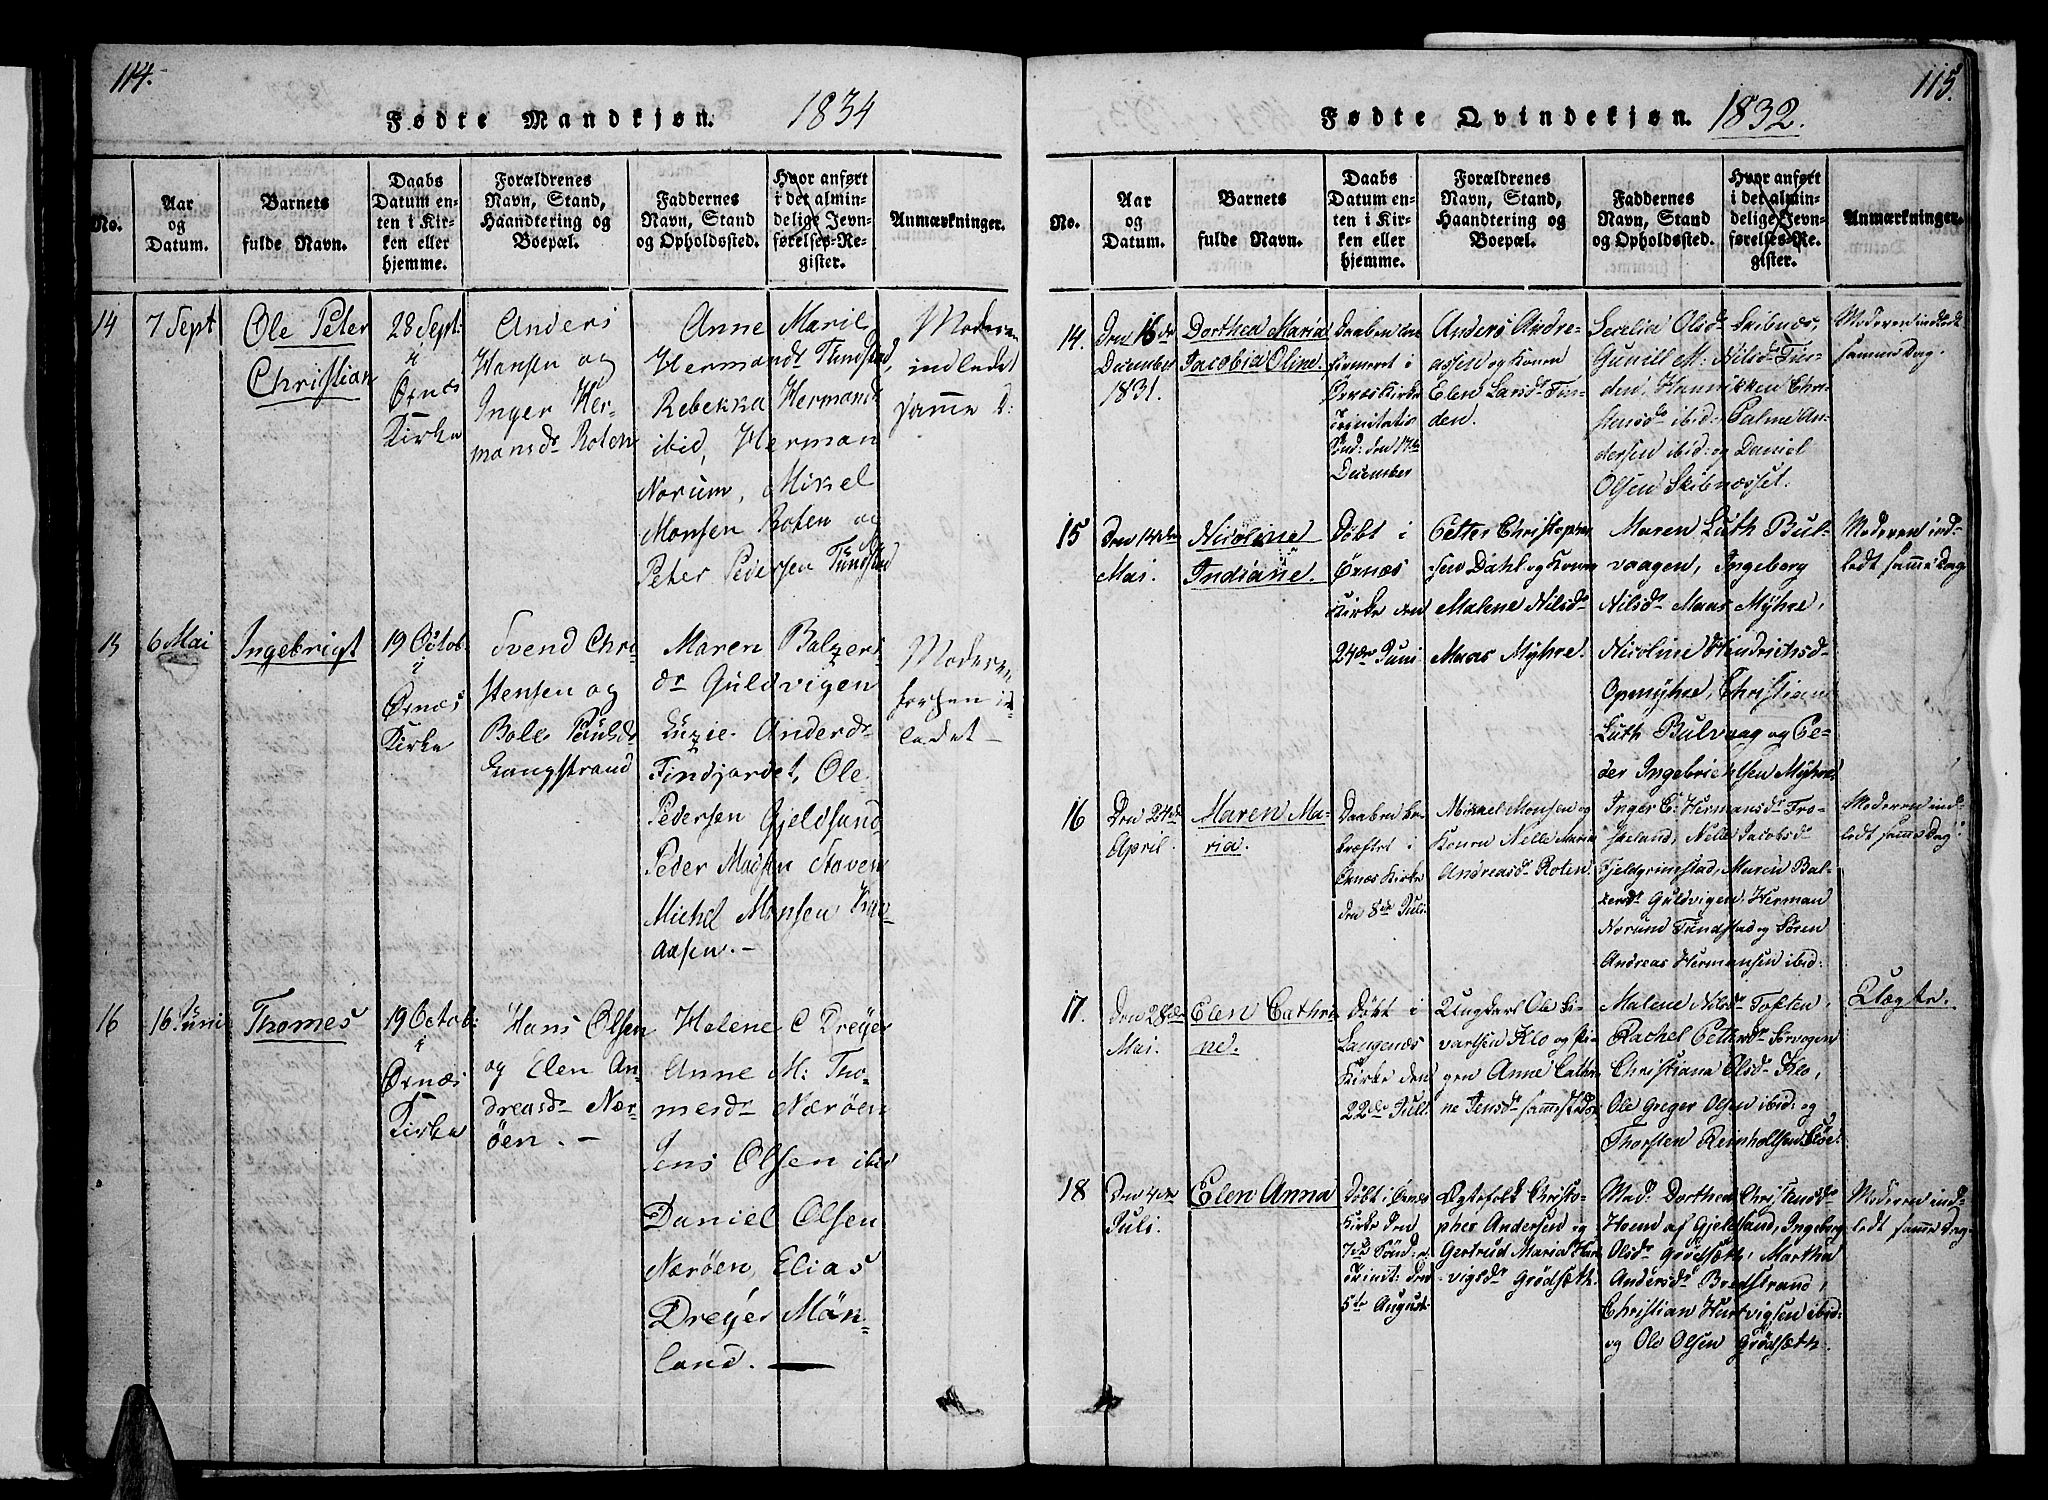 114.
Fødte Mandkjøn. 1834
No.
Aar
og
Datum.
Barnets
fulde Navn.
Daabs
Datum en-
ten i Kir-
ken eller
hjemme.
Forældrenes
Navn, Stand,
Haandtering og
Boepæl.
Faddernes
Navn, Stand
og Opholdssted.
Hvor anført
i det almin-
delige Jevn-
førelses-Re-
gister.
Anmærkninger.
14
7 Sept
Ole Peter
Christian
28 Sept:
i
Ørnæs
Kirke
Anders
Hansen og
Inger Her-
mansdr Roten
Anne Maril
Hermandr Tundstad,
Rebekka Hermands
ibid, Herman
Norum, Mikel
Monsen Roten og
Peter Pedersen Tundstad
Moderen
indledt
samme D:
15
6 Mai
Ingebrigt
19 Octob:
i
Ørnæs
Kirke
Svend Chri-
stensen og
Bole Paulsdr
Langstrand
Maren Balzers
dr Guldvigen
Luzie Andersdr
Findjordet, Ole
Pedersen Gjeldsund
Peder Madsen Staven
Michel Monsen
aasen. -
Moderen
forhen in-
ledet -
16
16 Juni
Thomes
19 Octob:
i
Ørnæs
Kirke
Hans Olsen
og Elen An-
dreasdr Nær-
öen. -
Helene C Dreyer
Anne M: Tho-
mesdr Næröen
Jens Olsen ibid
Daniel Olsen
Næröen, Elias
Dreyer Mön-
land. -
115.
Fødte Qvindekjøn. 1832.
No.
Aar
og
Datum.
Barnets
fulde Navn.
Daabs
Datum en-
ten i Kir-
ken eller
hjemme.
Forældrenes
Navn, Stand,
Haandtering og
Boepæl.
Faddernes
Navn, Stand
og Opholdssted.
Hvor anført
i det almin-
delige Jevn-
førelses-Re-
gister.
Anmærkninger.
14.
Den 16de
December
1831.
Dorthea Maria
Jacobia Oline.
Daaben con
firmert i
Ørnæs Kirke
Trinitatis
Sönd: den 17de
December
Anders Andre-
assen og Konen
Elen Larsdr Tin-
den.
Secelia Olsdr Skibnæs,
Gunill M: Nilsdr Tin-
den, Henrikken Chri-
stensdr ibid: Palme An-
dersen ibid: og Daniel
Olsen Skibnæsset.
Moderen indledt
samme Dag.
15
Den 14de
Mai.
Nicoline
Indiane.
Døbt i
Ørnæs
Kirke den
24de Juni
Petter Christophe
sen Dahl og Konen
Malene Nilsdr
Maas Myhre.
Maren Luth Bul-
vaagen, Ingeborg
Nilsdr Maas Myhre,
Nicoline Hindrichsd
Opmyhre, Christian
Luth Bulvaag og Pe-
der Ingebrichtsen Myhre
Moderen ind-
ledt samme Dag
16
Den 24de
April.
Maren Ma-
ria.
Daaben be-
kræftet i
Ørnæs Kirke
den 8de Juli
Mikael Monsen og
Konen Nelle Maria
Andreasdr Roten.
Inger C: Hermansdr Tro-
Nelle Jacobsdr
Fjeldgrimstad, Maren Bal-
zersdr Guldvigen, Herman
Norum Tundstad og Sören
Andreas Hermansen ibid:
Moderen ind-
ledt samme Dag
17.
Den 28de
Mai.
Elen Cathri
ne.
Døbt i
Langenæs
Kirke den
22de Juli
Ungkarl Ole Si-
vartsen Klo og Pi-
gen Anne Cathri
ne Jensdr sammesteds
Malene Nilsdr Toften,
Rachel Pettersdr Sorvogen
Christiana Olsdr Klo,
Ole Greger Olsen ibid: og
Thorsten Reinholtsen
Uægte.
18
Den 4de
Juli.
Elen Anna
Døbt i Ørnæs
Kirke den
7de Sönd: e.
Trinit: den
5te August
Ægtefolk Christo-
pher Andersen og
Gertrud Maria Hart
vigsdr Grödsæth.
Mad: Dorthea Christensdr
Hemd af Gjeldsund, Ingeborg
Olsdr Grödsæth, Martha
Andersdr Bredstrand,
Christian Hartvigsen ibid:
og Ole Olsen Grödsæth.
Moderen ind-
ledt samme Dag